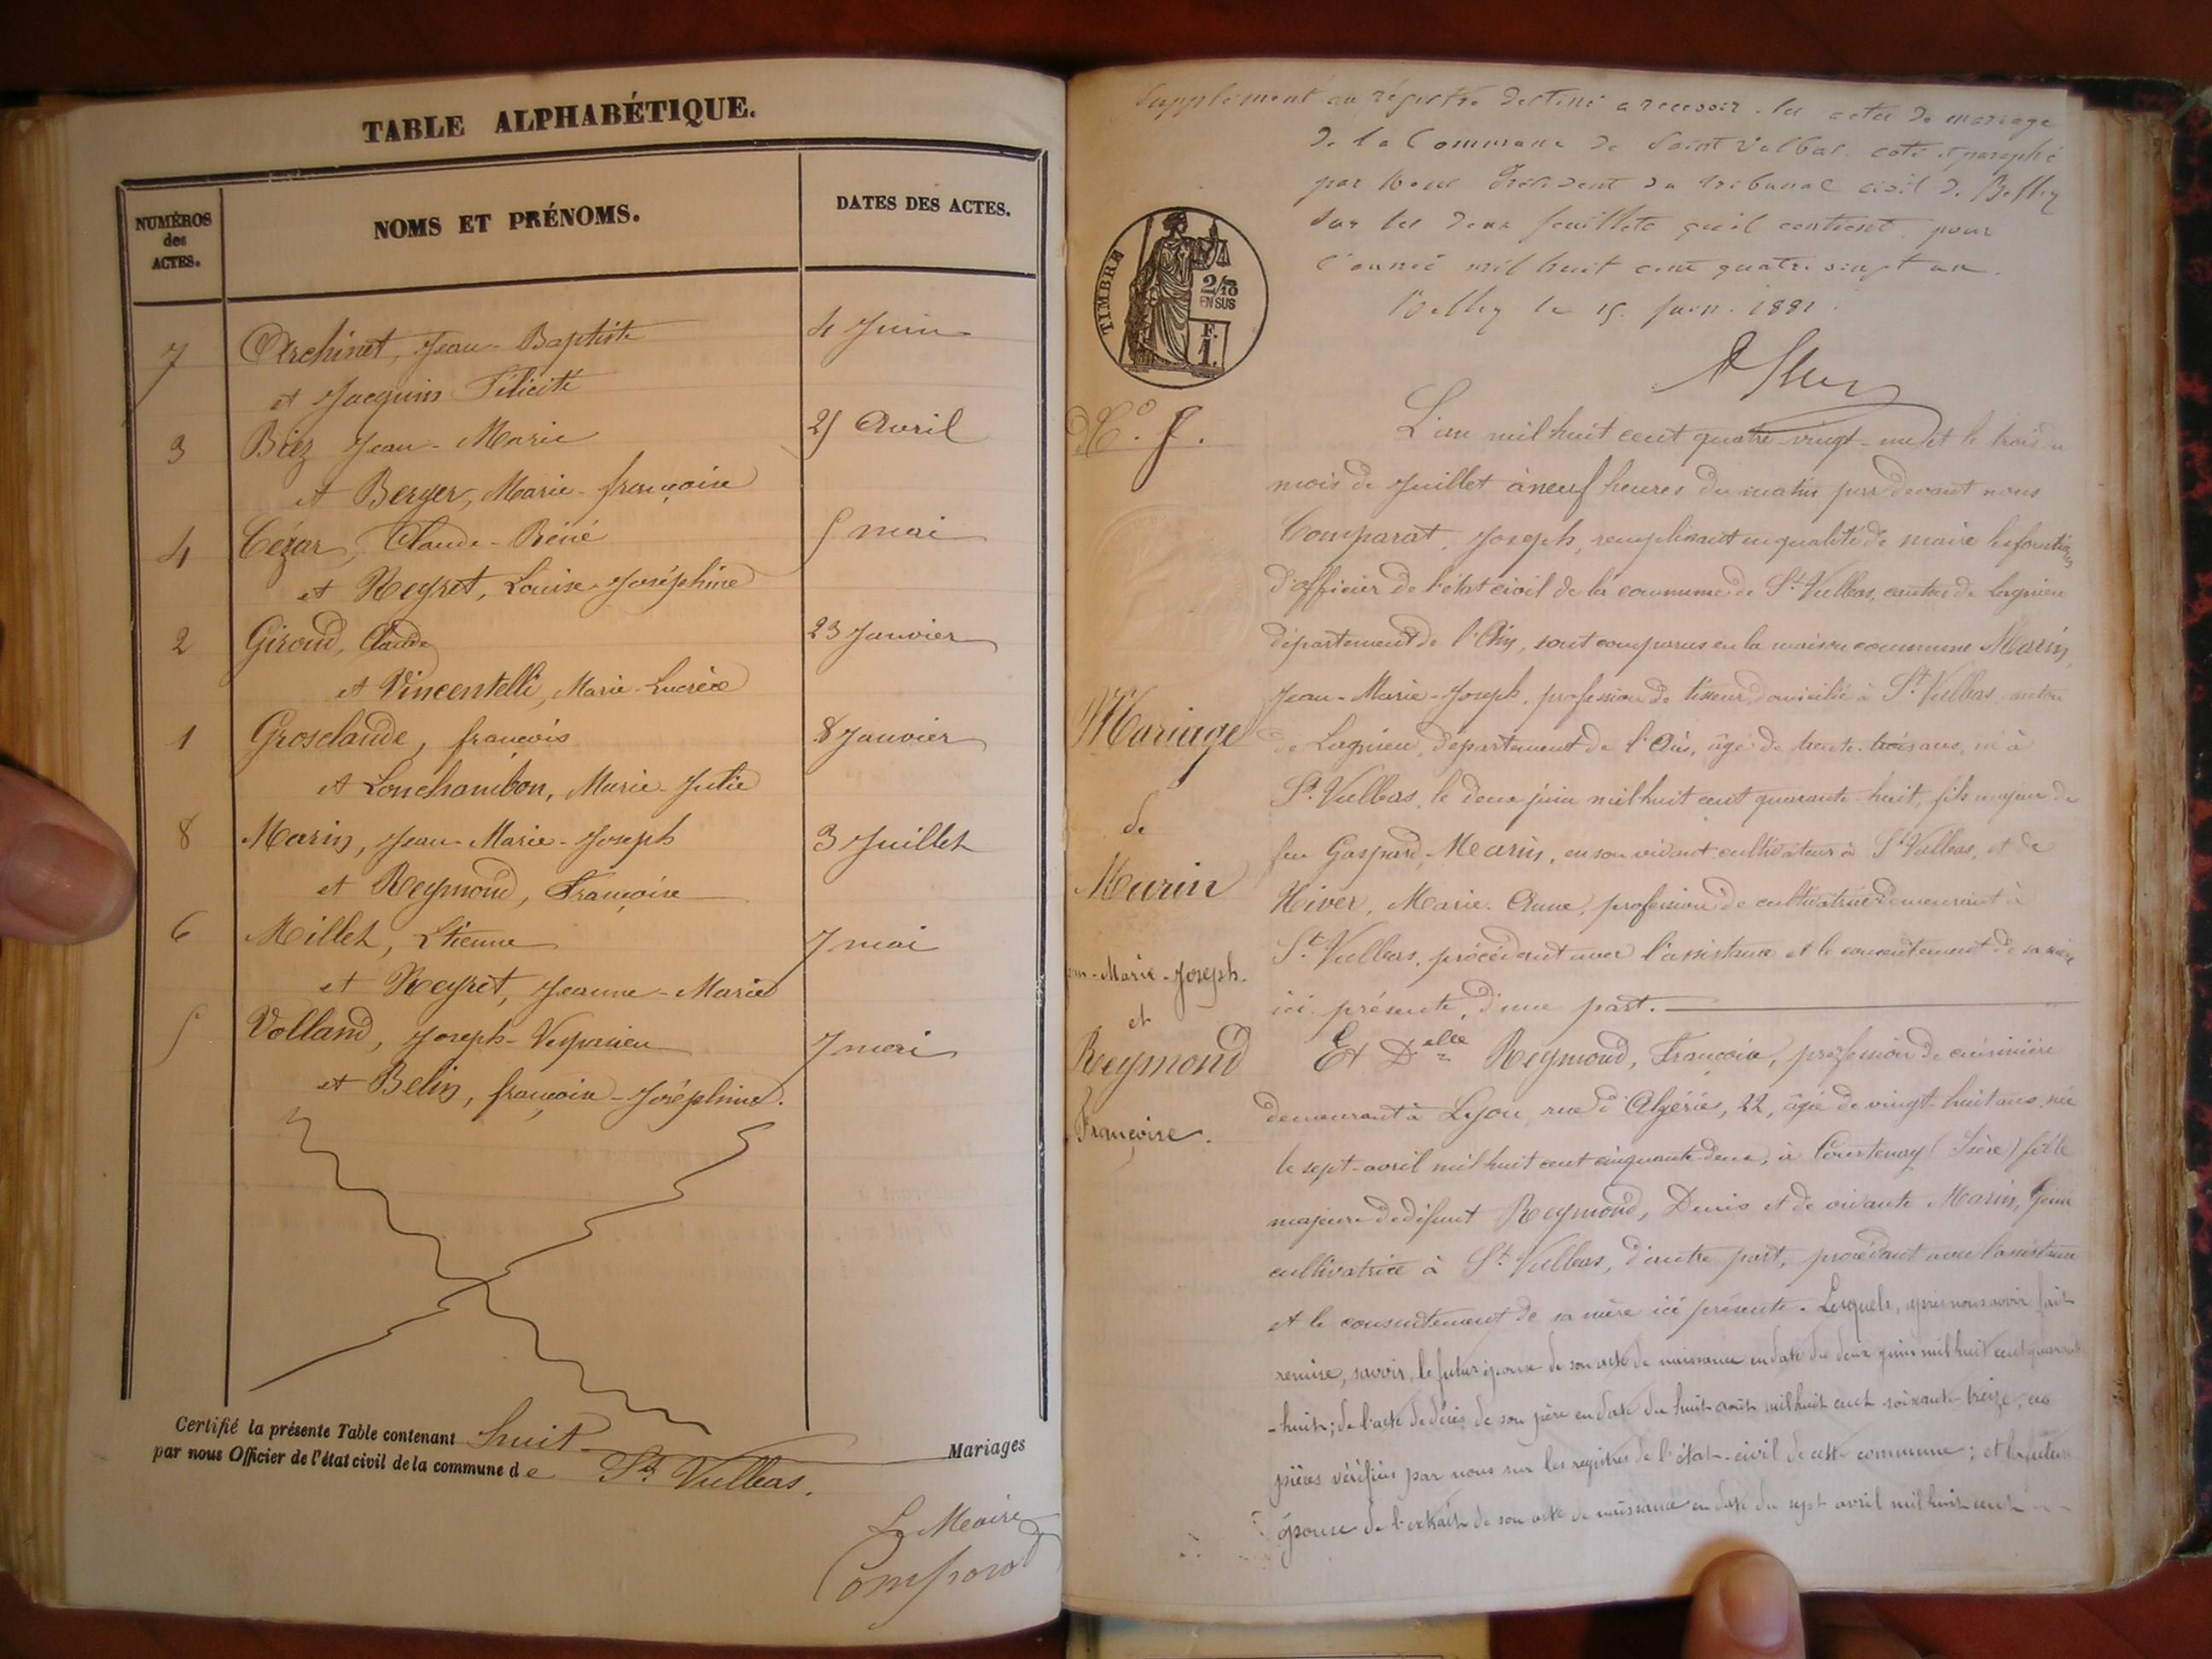 TABLE ALPHABÉTIQUE.
NUMÉROS
des
ACTES.
NOMS ET PRÉNOMS.
DATES DES ACTES.
7 Archinet, Jean-Baptiste 4 Juin
et Jacquin Félicité
3 Biez Jean-Marie 25 Avril
et Berger, Marie-françoise
4 Cézar, Claude-Réné 5 mai
et Reyret, Louise-Joséphine
2 Giroud, Claude 23 Janvier
et Vincentelli, Marie-Lucrèce
1 Grosclaude, francois 8 Janvier
et Lonchambon, Marie-Julie
8 Marin, Jean-Marie-Joseph 3 Juillet
et Reymond, Françoise
6 Millet, Etienne 7 mai
et Reyret, Jeanne-Marie
5 Volland, Joseph-Vespasien 7 mai
et Belin, françoise-Joséphine.
Certifié la présente Table contenant huit Mariages
par nous Officier de l'état civil de la commune de St Vulbas.
Le Maire
Comparat
Supplément au régistre destiné a recevoir les actes de mariage
de la Commune de Saint Vulbas. coté et paraphé
par Nous Président du tribunal civil de Belley
sur les deux feuillets qu'il contient pour
l'année mil huit cent quatre vingt un.
Belley le 15 Juin 1881.
TIMBRE
2/10
EN SUS
F.
1.
No. 8.
L'an mil huit cent quatre-vingt-un et le trois du
mois de Juillet à neuf heures du matin par devant nous
Comparat, Joseph, remplissant en qualité de maire les fonctions
d'officier de l'état civil de la commune de St. Vulbas, canton de Lagnieu
département de l'Ain, sont comparus en la maison commune Marin,
Jean-Marie-Joseph, profession de tisseur, domicilié à St. Vulbas canton
Mariage
de Lagnieu, département de l'Ain, âgé de trente-trois ans, né à
St. Vulbas, le deux juin mil huit cent quarante-huit, fils majeur de
de
feu Gaspard Marin, en son vivant cultivateur à St. Vulbas, et de
Marin
Hiver, Marie-Anne, profession de cultivatrice demeurant à
St. Vulbas, procédant avec l'assistance et le consentement de sa mère
-Marie-Joseph.
ici présente, d'une part.
et
Reymond
Et Delle Reymond, Françoise, profession de cuisinière
demeurant à Lyon, rue d'Algérie, 22, âgée de vingt-huit ans, née
Françoise.
le sept-avril mil huit cent cinquante-deux, à Courtenay (Isère) fille
majeure de défunt Reymond, Denis et de vivante Marin,
cultivatrice à St. Vulbas, d'autre part, procédant avec l'assistance
et le consentement de sa mère ici présente. Lesquels, après nous avoir fait
remise, savoir, le futur époux de son acte de naissance en date du deux juin mil huit cent quarante
-huit; de l'acte de décès de son père en date du huit août mil huit cent soixante-treize, ces
pièces vérifiées par nous sur les registres de l'état-civil de cette commune; et la future
épouse de l'extrait de son acte de naissance en date du sept avril mil huit cent